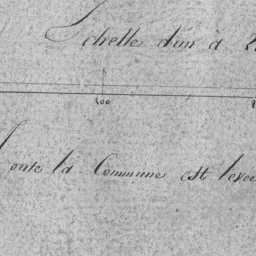 Echelle d'un à 2
100
Toute la Commune est levée